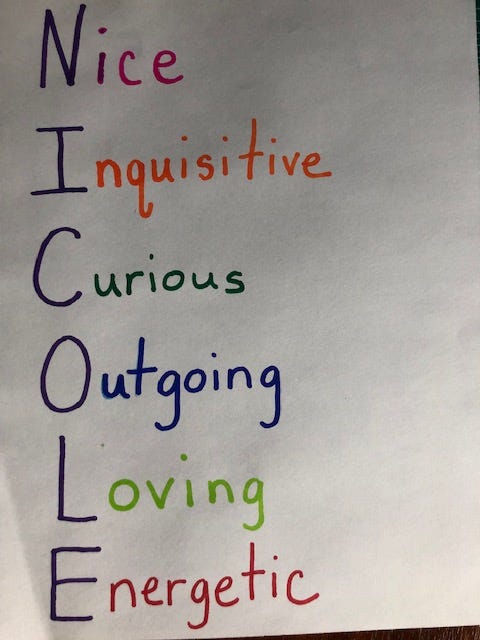 Nice
Inquisitive
Curious
Outgoing
Loving
Energetic